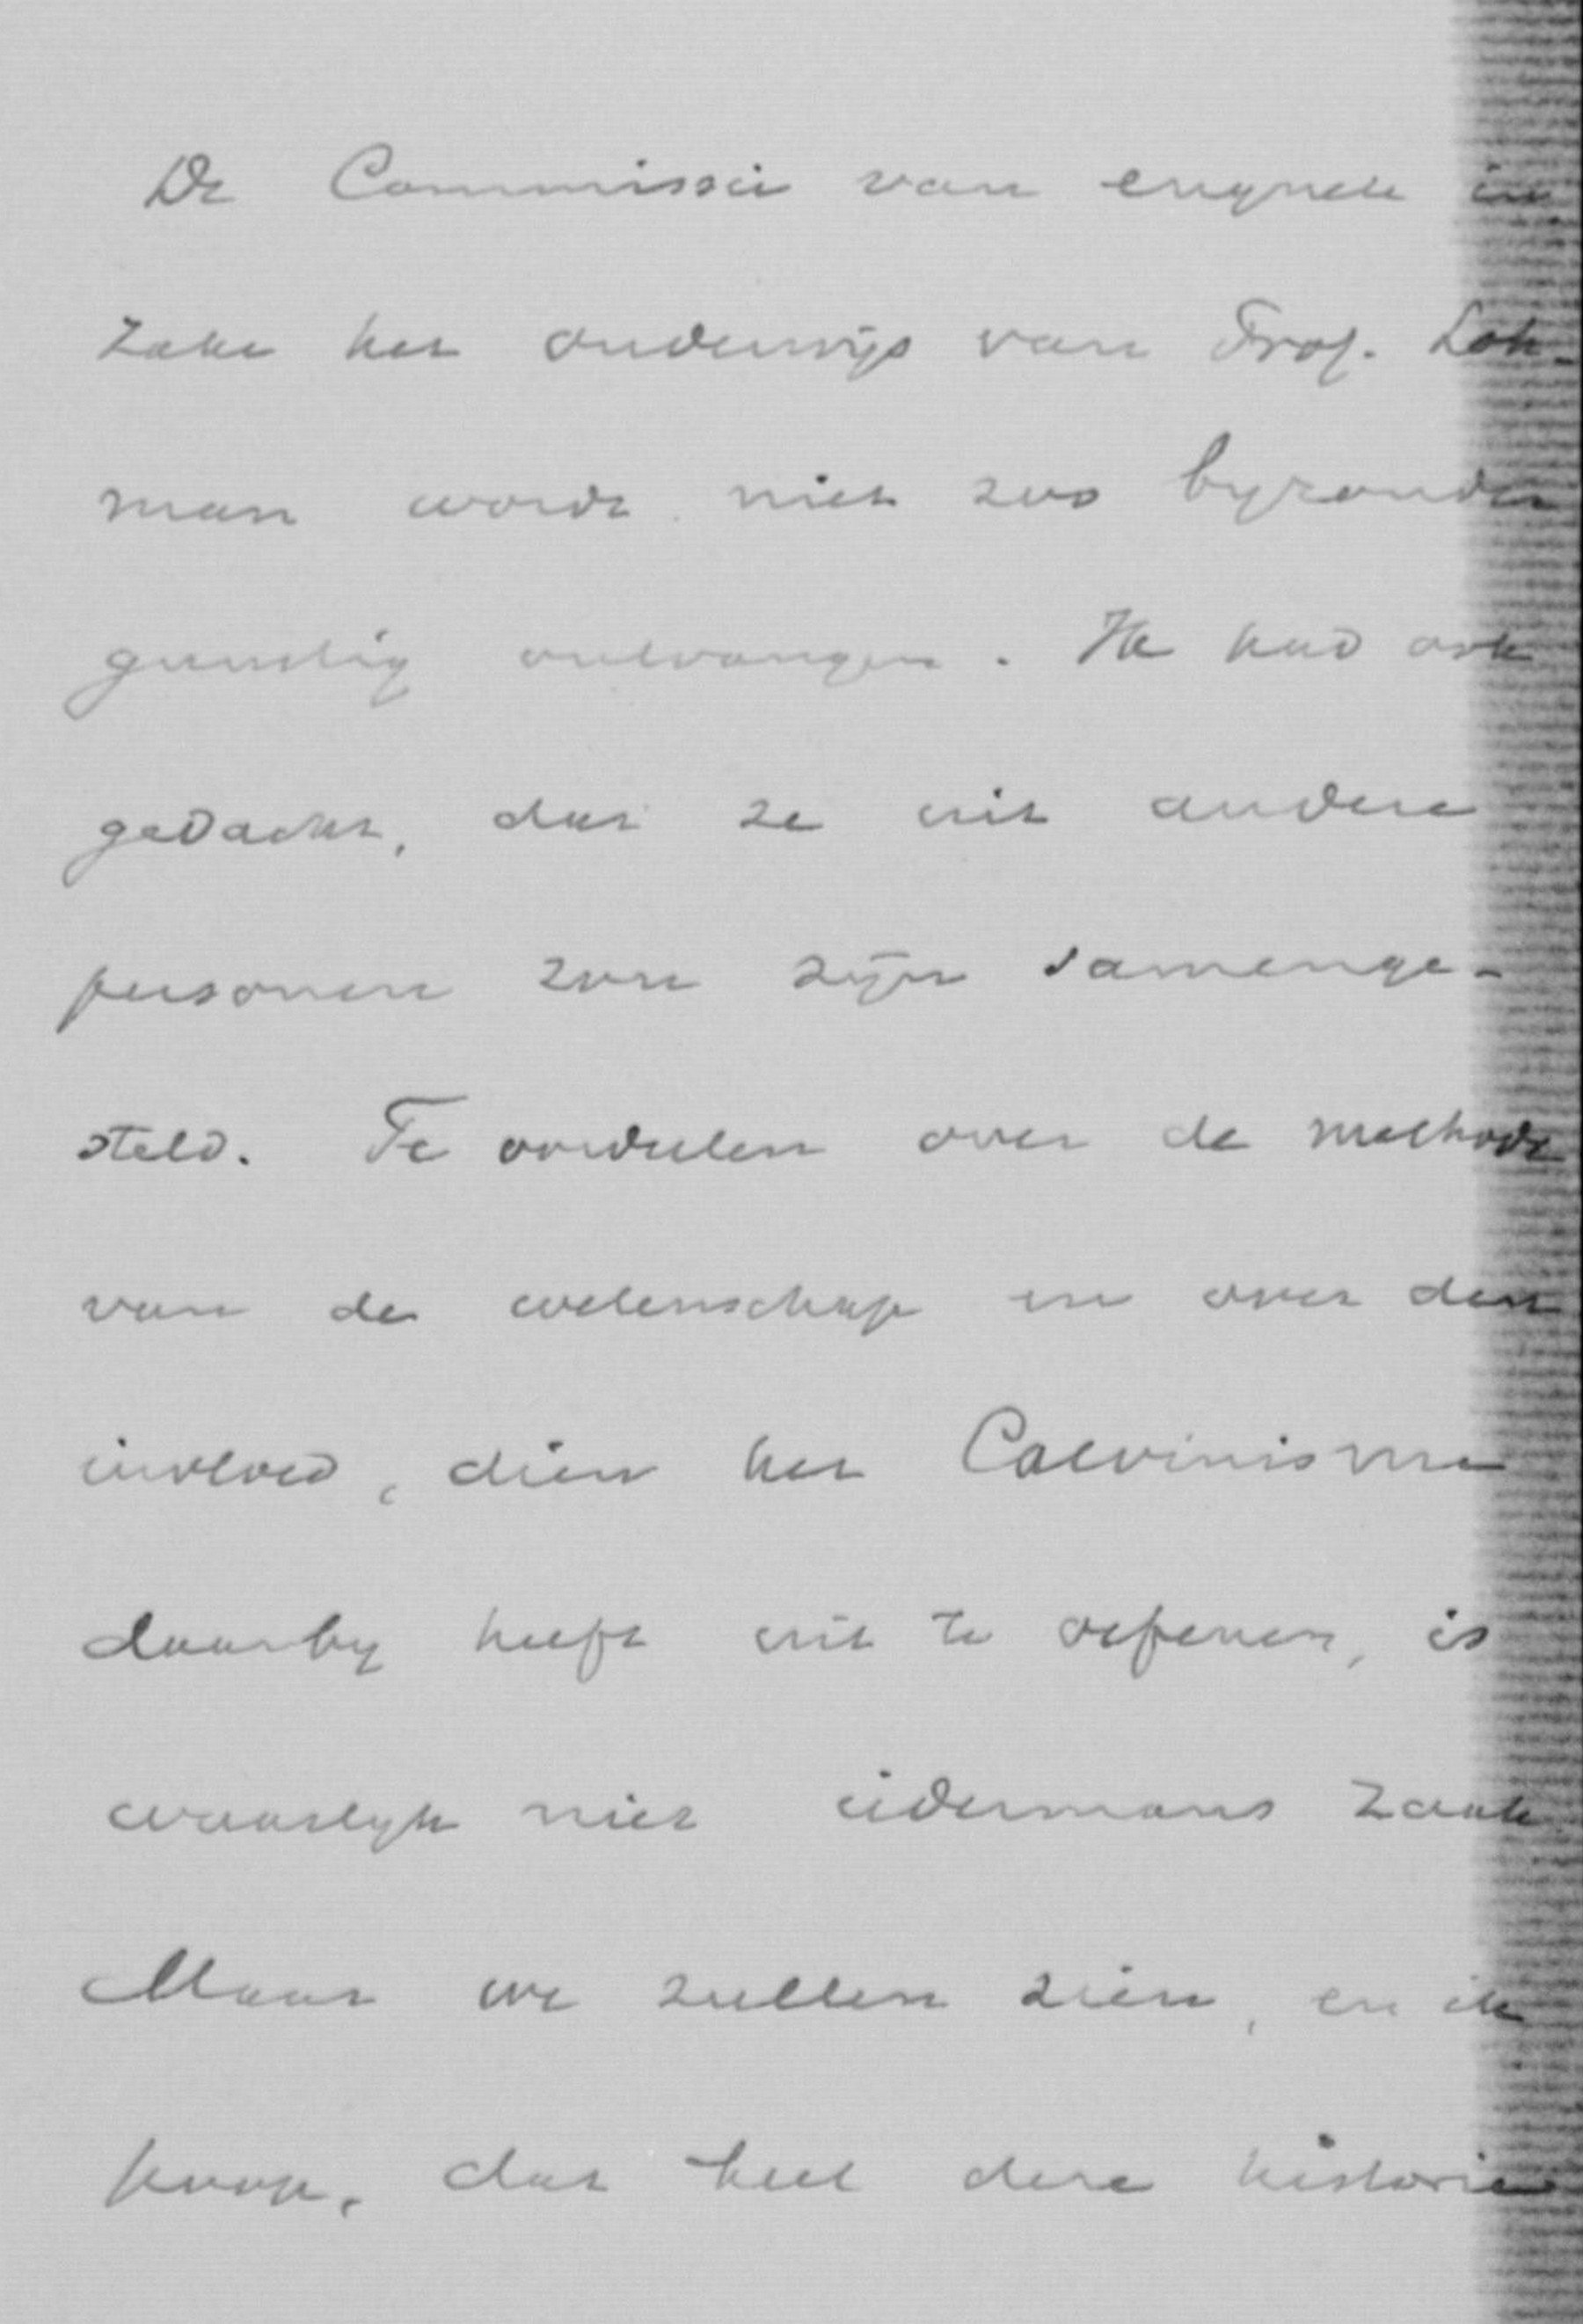 De Commissie van enquete in
zake het onderwijs van Prof. Loh-
man wordt niet zoo byzonder
gunstig ontvangen. Ik had ook
gedacht, dat ze uit andere
personen zou zijn samenge-
steld. Te oordeelen over de methode
van de wetenschap en over den
invloed, dien het Calvinisme
daarby heeft uit te oefenen, is
waarlyk niet iedermans zaak.
Maar we zullen zien, en ik
hoop, dat heel deze historie